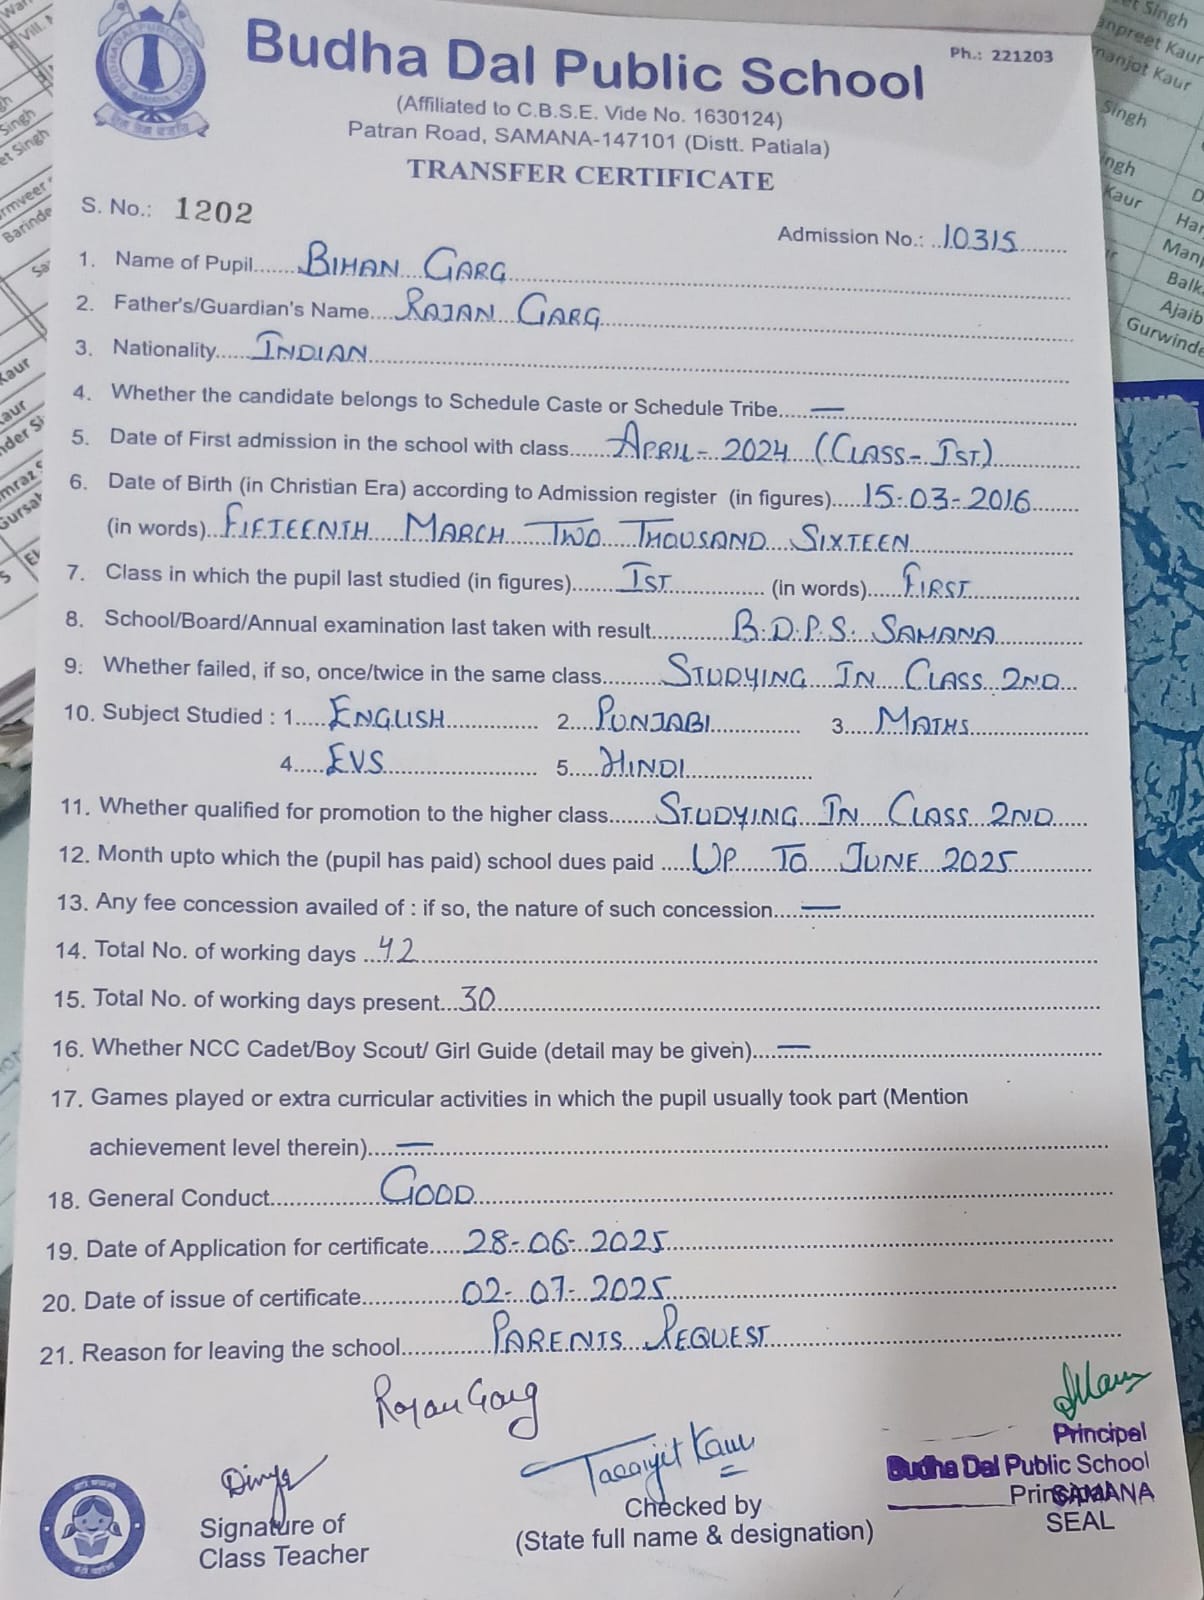 Budha Dal Public School
Ph.: 221203
(Affiliated to C.B.S.E. Vide No. 1630124)
Patran Road, SAMANA-147101 (Distt. Patiala)
TRANSFER CERTIFICATE
S. No.: 1202
Admission No.: 10315
1. Name of Pupil BIHAN GARG
2. Father's/Guardian's Name RAJAN GARG
3. Nationality INDIAN
4. Whether the candidate belongs to Schedule Caste or Schedule Tribe —
5. Date of First admission in the school with class APRIL - 2024 (CLASS - IST)
6. Date of Birth (in Christian Era) according to Admission register (in figures) 15-03-2016
(in words) FIFTEENTH MARCH TWO THOUSAND SIXTEEN
7. Class in which the pupil last studied (in figures) IST (in words) FIRST
8. School/Board/Annual examination last taken with result B.D.P.S. SAMANA
9. Whether failed, if so, once/twice in the same class STUDYING IN CLASS 2ND
10. Subject Studied : 1. ENGLISH 2. PUNJABI 3. MATHS
4. EVS 5. HINDI
11. Whether qualified for promotion to the higher class STUDYING IN CLASS 2ND
12. Month upto which the (pupil has paid) school dues paid UP TO JUNE 2025
13. Any fee concession availed of : if so, the nature of such concession —
14. Total No. of working days 42
15. Total No. of working days present 30
16. Whether NCC Cadet/Boy Scout/ Girl Guide (detail may be given) —
17. Games played or extra curricular activities in which the pupil usually took part (Mention
achievement level therein) —
18. General Conduct GOOD
19. Date of Application for certificate 28-06-2025
20. Date of issue of certificate 02-07-2025
21. Reason for leaving the school PARENTS REQUEST
Rajan Garg
Signature of
Class Teacher
Kaur
Checked by
(State full name & designation)
Principal
Budha Dal Public School
SAMANA
Principal
SEAL
et Singh
anpreet Kaur
manjot Kaur
Singh
Kaur
Manj
Balk
Ajaib
Gurwinde
Singh
et Singh
Kaur